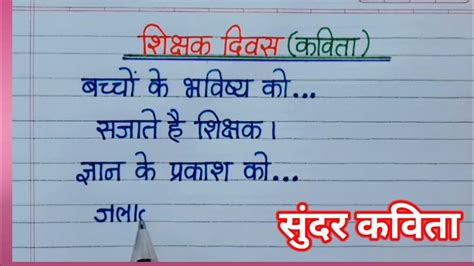 शिक्षक दिवस (कविता)
बच्चों के भविष्य को...
सजाते है शिक्षक।
ज्ञान के प्रकाश को...
जला
सुंदर कविता